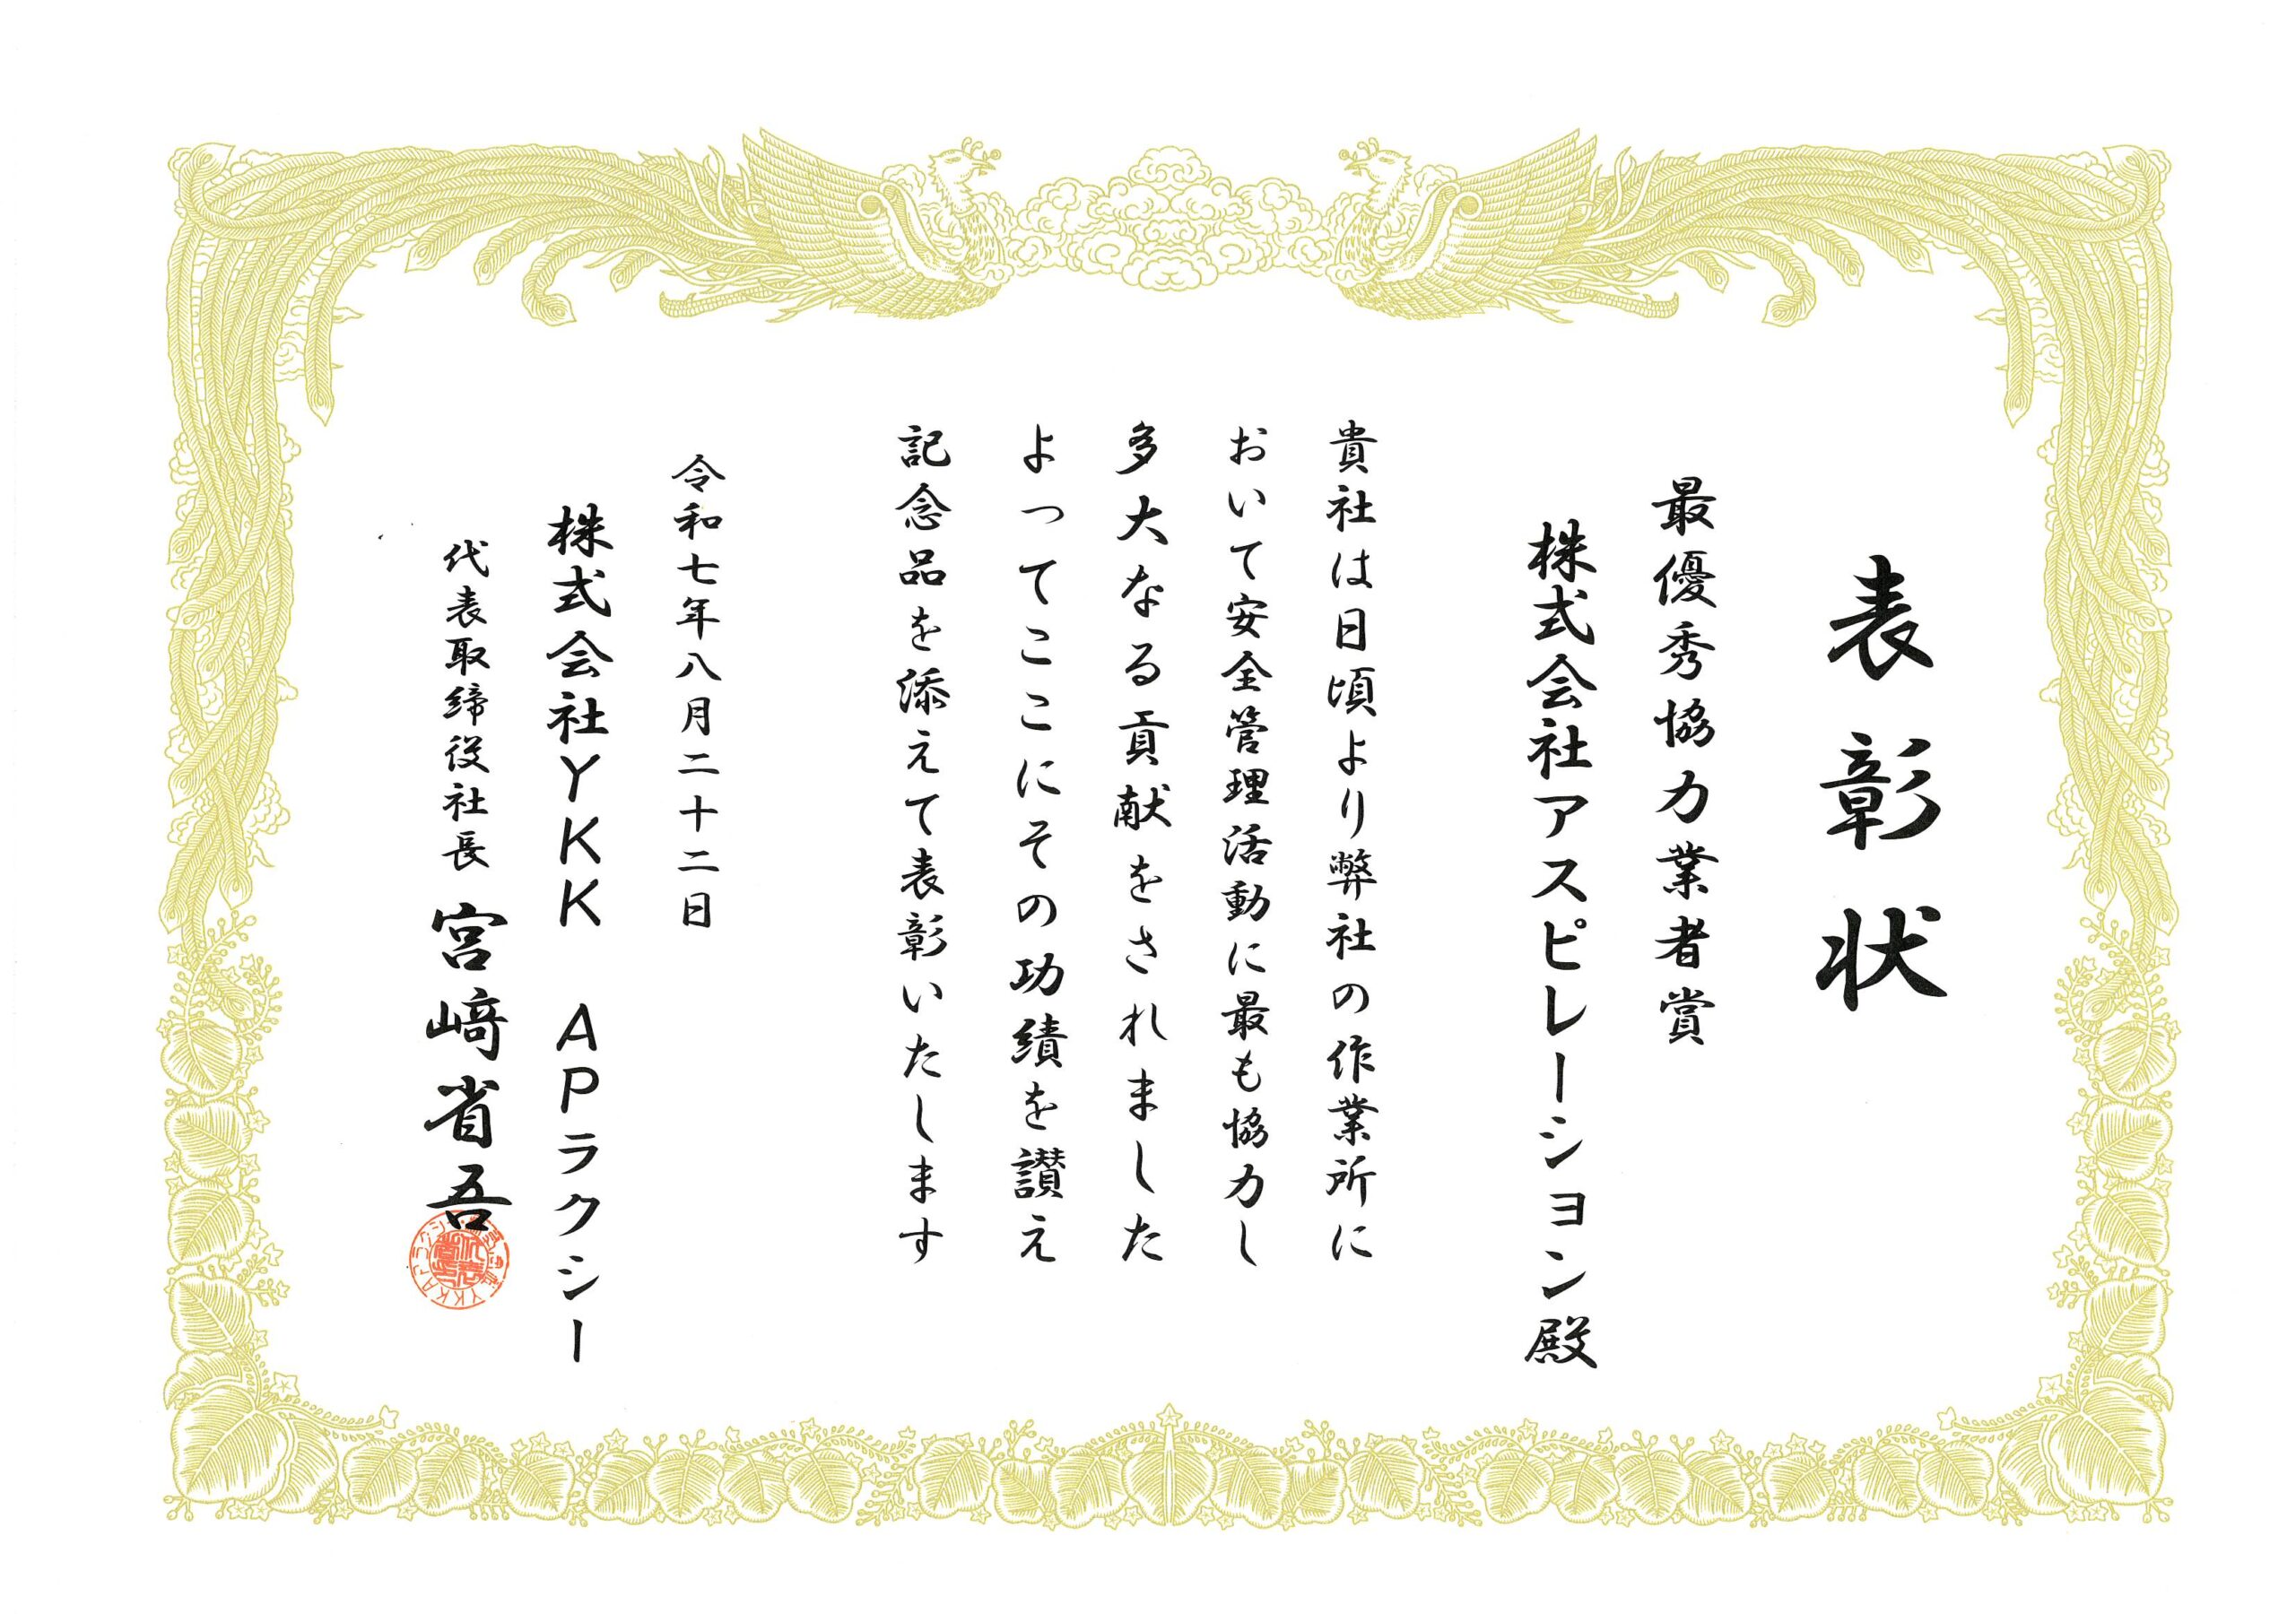 表彰状
最優秀協力業者賞
株式会社アスピレーション殿
貴社は日頃より弊社の作業所に
おいて安全管理活動に最も協力し
多大なる貢献をされました
よってここにその功績を讃え
記念品を添えて表彰いたします
令和七年八月二十二日
株式会社YKK APラクシー
代表取締役社長 宮﨑省吾